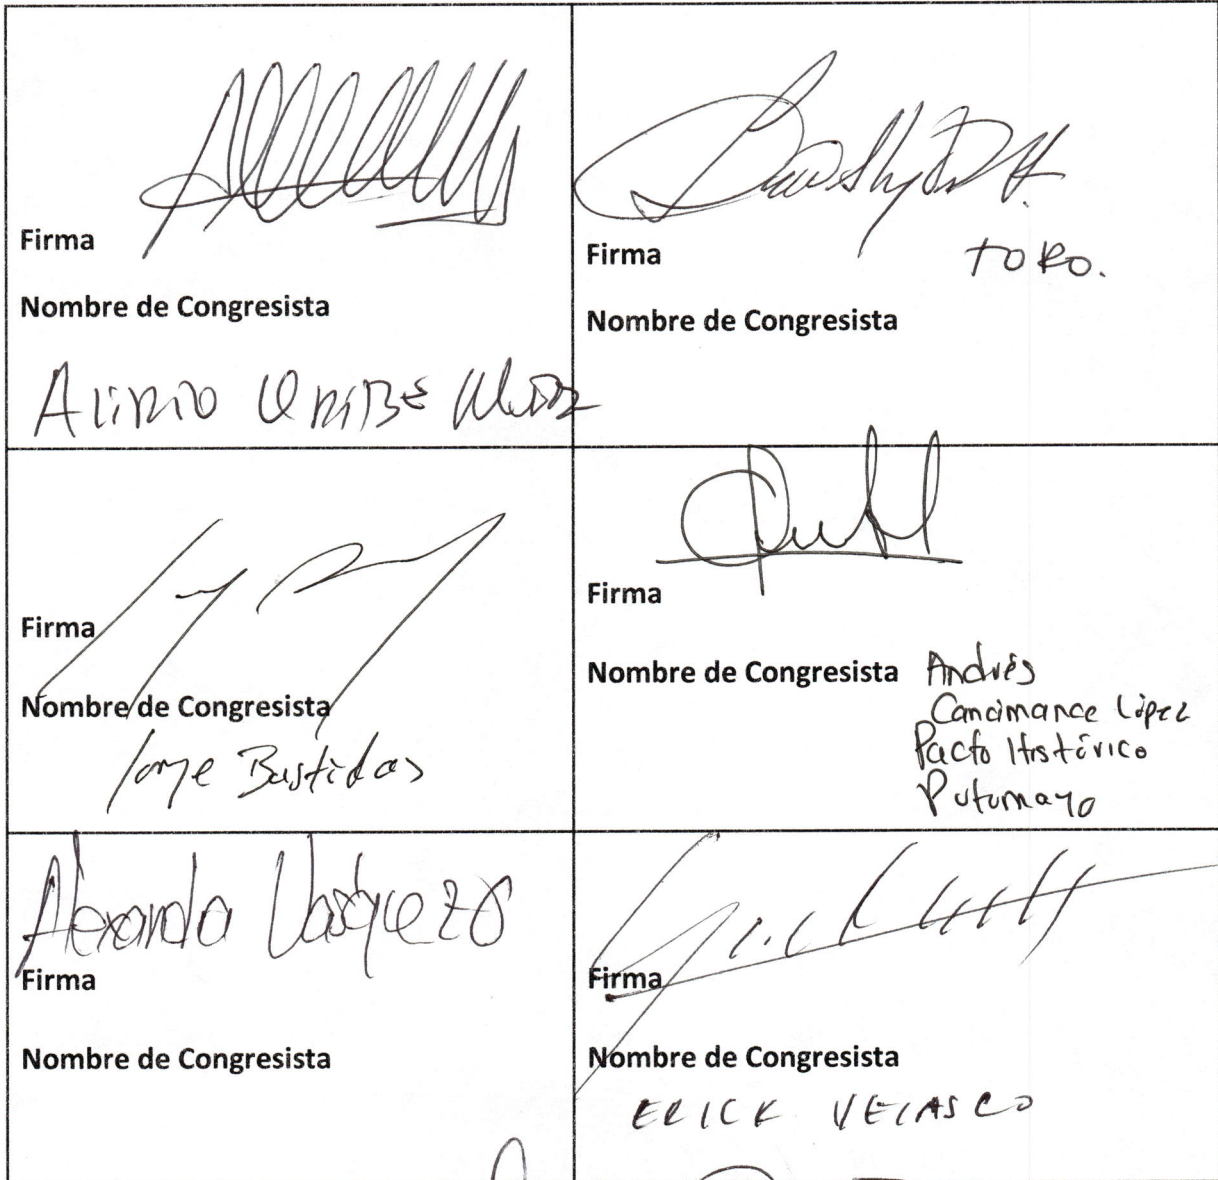 Firma
Nombre de Congresista
Alirio Uribe Muñoz
Firma
TORO.
Nombre de Congresista
Firma
Nombre de Congresista
Jorge Bastidas
Firma
Nombre de Congresista Andrés
Cancimance López
Pacto Histórico
Putumayo
Alexandra Vásquez
Firma
Nombre de Congresista
Firma
Nombre de Congresista
ERICK VELASCO